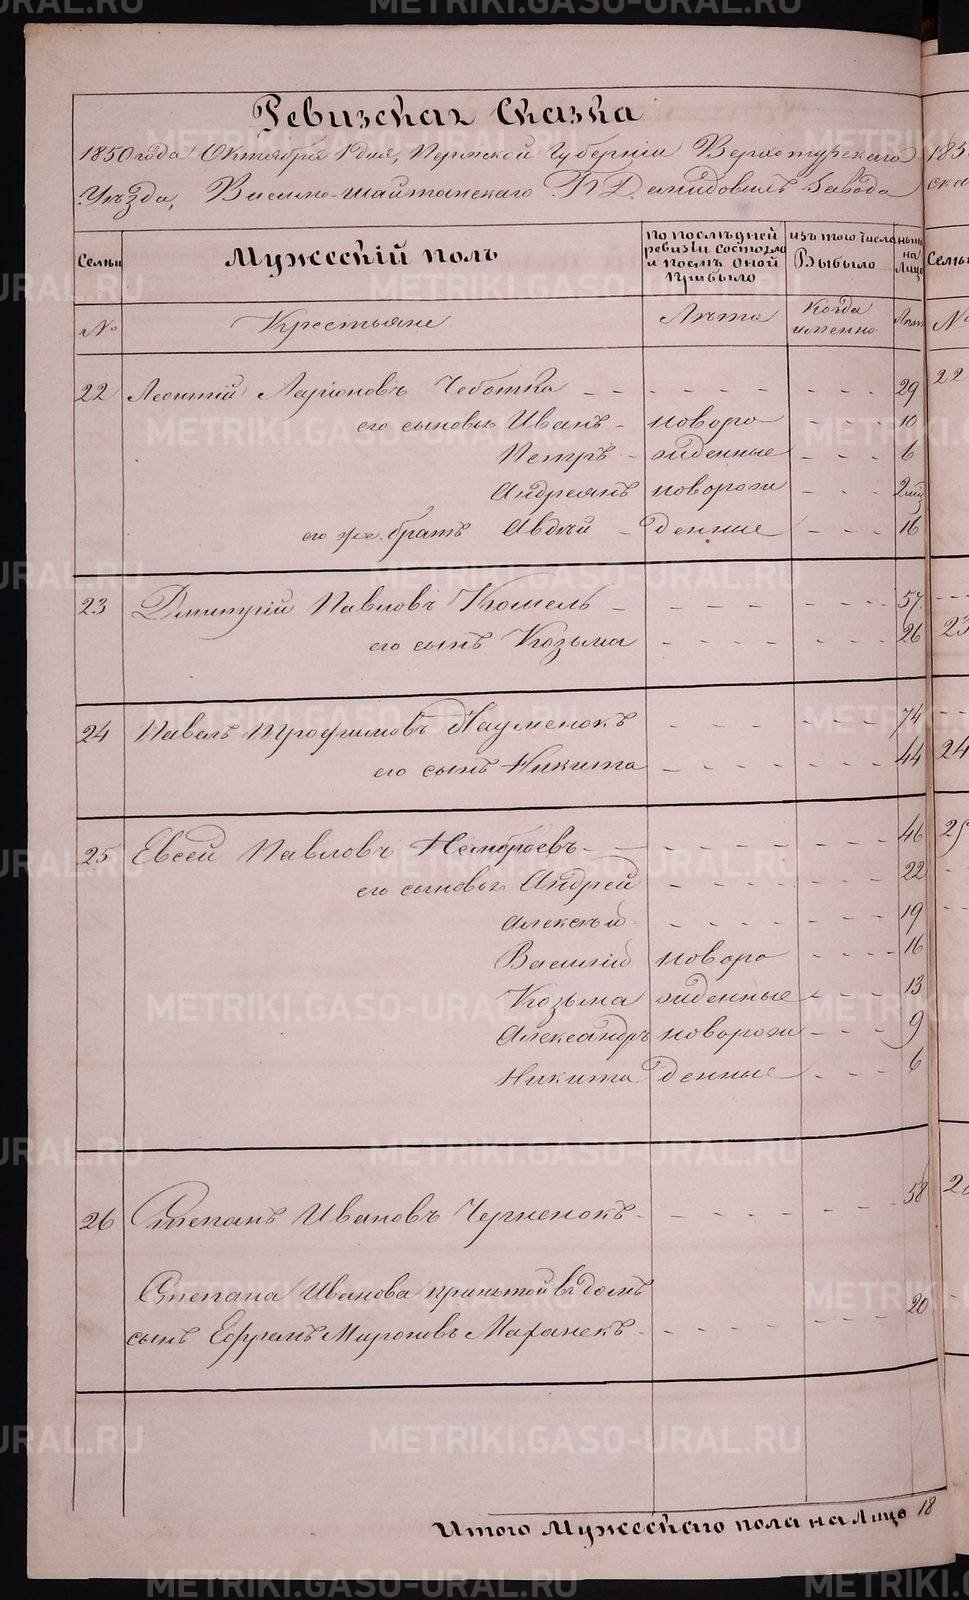 Ревизская Сказка
1850 года Октября 1 дня, Пермской Губерніи Верхотурскаго
Уѣзда, Висимо-шайтанскаго П Демидовыхъ завода
Семьи
Мужескій полъ
по послѣдней ревизіи состояло и послѣ оной Прибыло
изъ того числа Выбыло
на Лицо
№
Крестьяне
Лѣта
Когда именно
Лѣта
22 Леонтій Ларіоновъ Чеботка - - - - - - - - 29
его сыновья Иванъ - новоро - - - 10
Петръ - жденные - - - 6
Андреянъ новорож - - -
его же братъ Авдѣй - денные - - - 16
23 Дмитрій Павловъ Кошель - - - - - - - - 57
его сынъ Козьма - - - - - - - 26
24 Павелъ Трофимовъ Науменокъ - - - - - - - 74
его сынъ Никита - - - - - - - 44
25 Евсей Павловъ - - - - - - - 46
его сыновья Андрей - - - - - - - 22
Алексѣй - - - - - - - 19
Василій новоро - - - 16
Козьма жденные - - - 13
Александръ новорож - - - 9
Никита денные - - - 6
26 Степанъ Ивановъ Черненокъ - - - - - - - - 58
Степана Иванова принятой въ домъ
сынъ Ефремъ Мироновъ - - - - - - - - 20
Итого Мужескаго пола на Лицо 18
185
Семьи
№
22
23
24
25